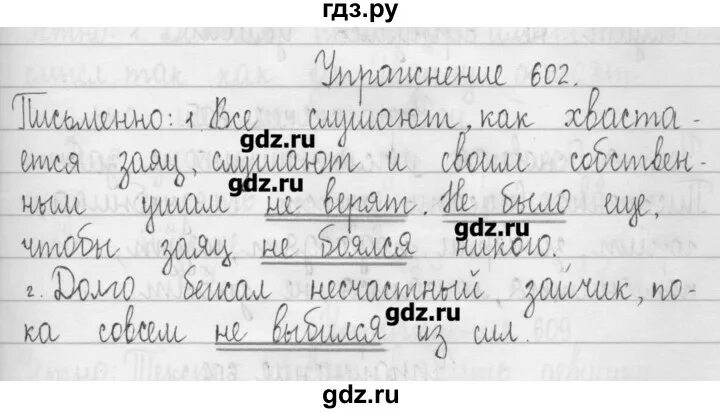 гдз.ру
Упражнение 602.
Письменно: 1. Все слушают, как хваста-
gdz.ru
ется заяц, слушают и своим собствен-
gdz.ru
ным ушам не верят. Не было еще,
gdz.ru
чтобы заяц не боялся никого.
gdz.ru
2. Долго бежал несчастный зайчик, по-
gdz.ru
ка совсем не выбился из сил.
gdz.ru